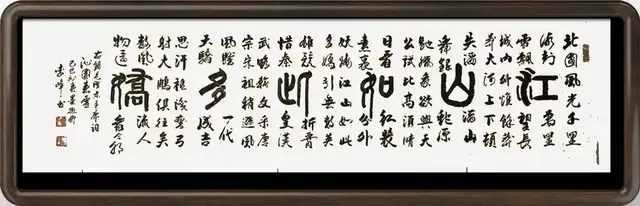 北國風光千里
冰封萬里
雪飄望長
江
城內外惟餘莽
莽大河上下頓
失滔滔山
舞銀蛇原
山
馳蠟象欲與天
公試比高須晴
日看紅裝
素裹分外
如
妖嬈江山如此
多嬌引無數英
雄競折腰
惜秦皇漢
此
武略輸文采唐
宗宋祖稍遜風
騷一代
天驕成吉
多
思汗衹識彎弓
射大鵰俱往矣
數風流人
物還看今朝
嬌
沁園春雪